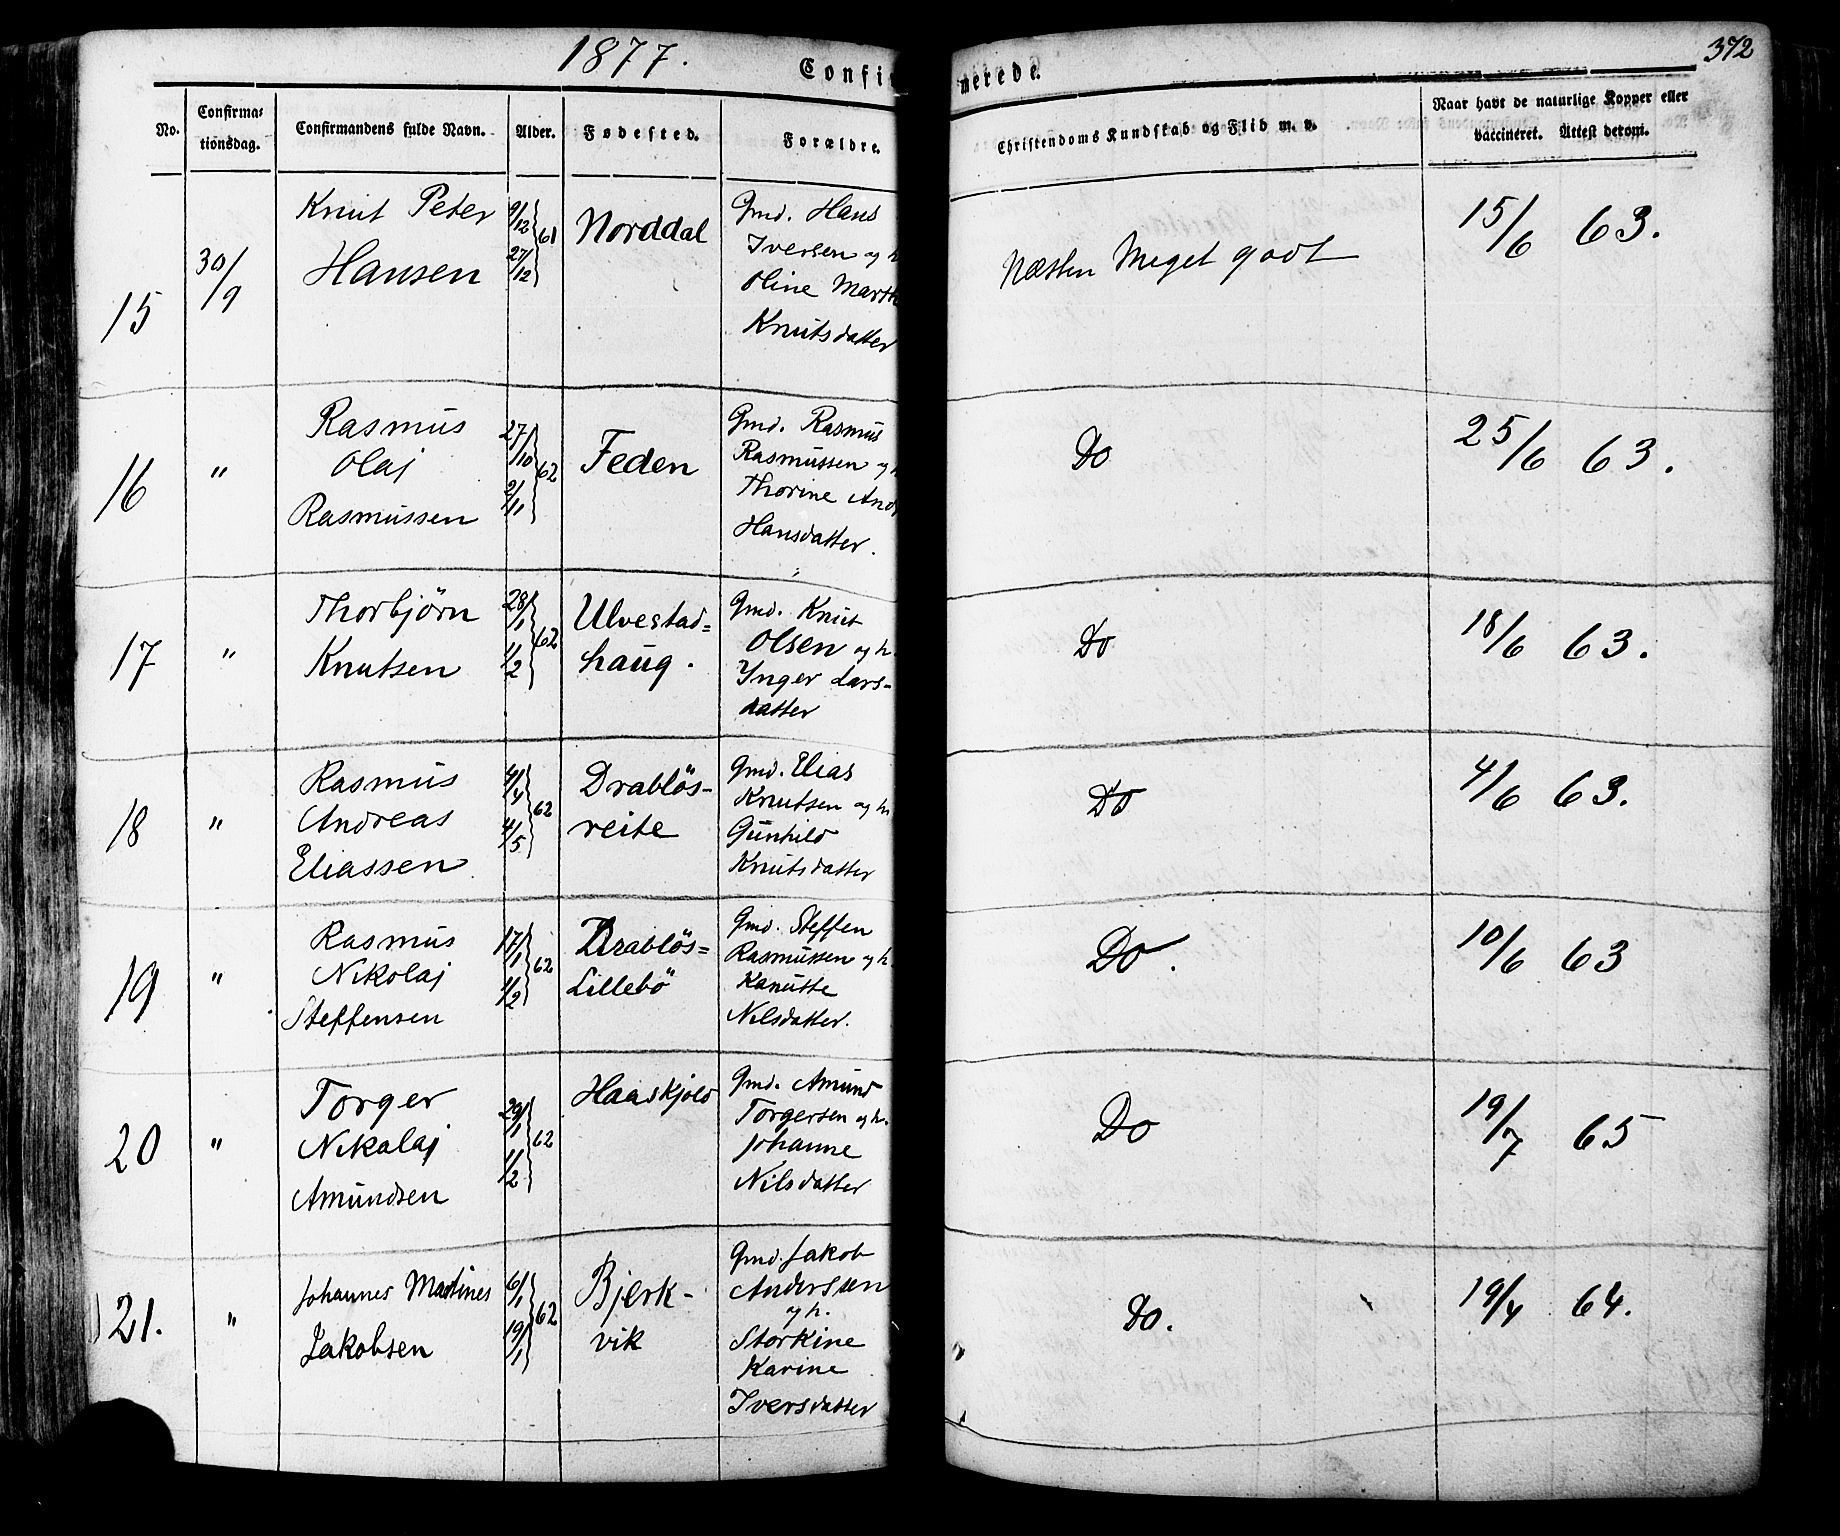 1877.
372
Confirmerede.
No.
Confirma-
tionsdag.
Confirmandens fulde Navn.
Alder.
Fødested.
Forældre.
Christendoms Kundskab og Flid m. v.
Naar havt de naturlige Kopper eller
vaccineret. Attest derom.
15
30/9
Knut Peter
Hansen
9/12
27/12
61
Norddal
Gmd. Hans
Iversen og h
Oline Marth
Knutsdatter
Næsten Meget godt
15/6 63.
16
"
Rasmus
Olaj
Rasmussen
27/10
2/11
62
Feden
Gmd. Rasmus
Rasmussen og h
Thorine And
Hansdatter.
Do
25/6 63.
17
"
Thorbjørn
Knutsen
28/1
1/2
62
Ulvestad=
haug.
Gmd. Knut
Olsen og h.
Ynger Lars-
datter
Do
18/6 63.
18
"
Rasmus
Andreas
Eliassen
4/4
4/5
62
Drabløs-
reite
Gmd. Elias
Knutsen og h
Gunhild
Knutsdatter
Do
4/6 63.
19
"
Rasmus
Nikolaj
Steffensen
17/1
1/2
62
Drabløs=
Lillebö
Gmd. Steffen
Rasmussen og h.
Kanutte
Nilsdatter.
Do.
10/6 63
20
"
Torger
Nikolaj
Amundsen
29/1
1/2
62
Haaskjold
Gmd. Amund
Torgersen og h.
Johanne
Nilsdatter
Do
19/7 65
21.
"
Johannes Martines
Jakobsen
6/1
19/1
62
Bjerk-
vik
Gmd. Jakob
Anderssen
og h.
Storkine
Karine
Iversdatter
Do.
19/4 64.